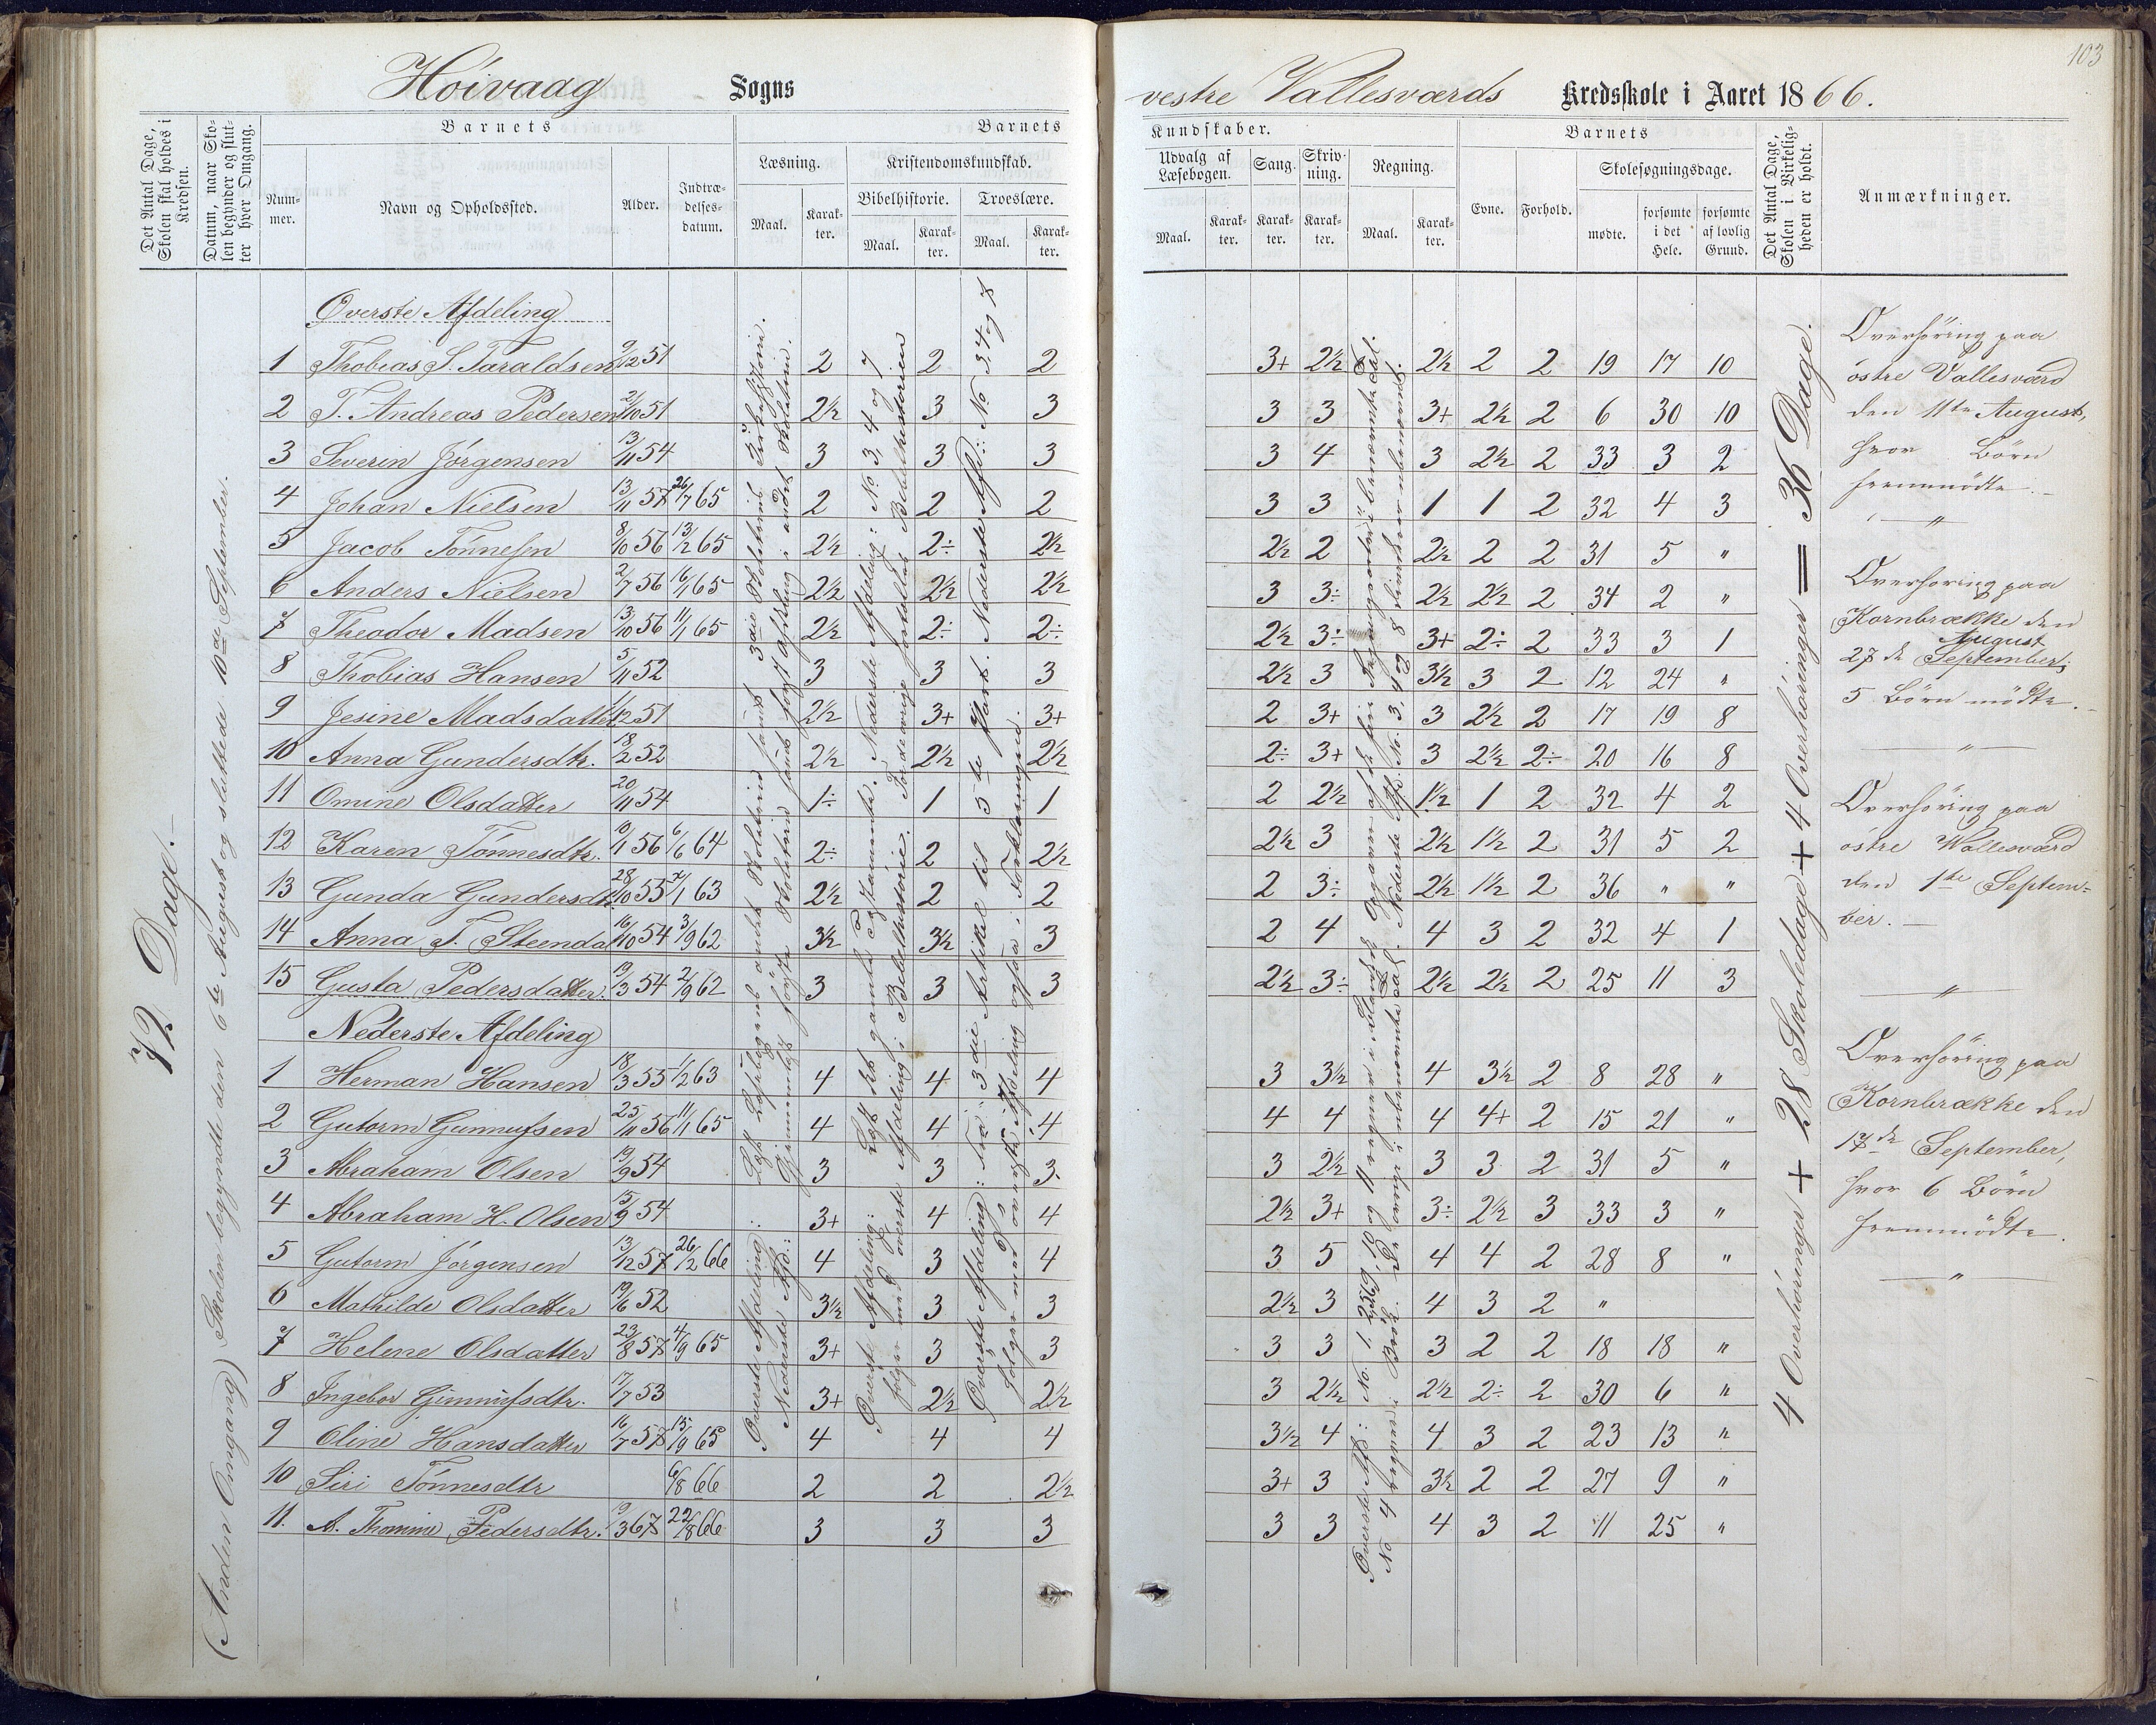 103
Höivaag Sogns
vestre Vallesværds Kredsskole i Aaret 1866.
Det Antal Dage, Skolen skal holdes i Kredsen.
Datum, naar Skolen begynder og slutter hver Omgang.
Barnets
Nummer.
Navn og Opholdssted.
Alder.
Indtrædelsesdatum.
Barnets Kundskaber.
Læsning.
Maal.
Karakter.
Kristendomskundskab.
Bibelhistorie.
Maal.
Karakter.
Troeslære.
Maal.
Karakter.
Udvalg af Læsebogen.
Maal.
Karakter.
Sang.
Karakter.
Skrivning.
Karakter.
Regning.
Maal.
Karakter.
Barnets
Evne.
Forhold.
Skolesøgningsdage.
mødte.
forsømte i det Hele.
forsømte af lovlig Grund.
Det Antal Dage, Skolen i Virkeligheden er holdt.
Anmærkninger.
72 Dage.
(Anden Omgang) Skolen begyndte den 6te August og sluttede 10de September.
Øverste Afdeling
1 Thobias S. Taraldsen 9/12 51 2 2 2 3+ 2½ 2½ 2 2 19 17 10
2 T. Andreas Pedersen 2/10 51 2½ 3 3 3 3 3+ 2½ 2 6 30 10
3 Severin Jörgensen 13/11 54 3 3 3 3 4 3 2½ 2 33 3 2
4 Johan Nielsen 13/11 57 26/7 65 2 2 2 3 3 1 1 2 32 4 3
5 Jacob Tönnesen 8/10 56 13/2 65 2½ 2÷ 2½ 2½ 2 2½ 2 2 31 5 "
6 Anders Nielsen 2/7 56 16/1 65 2½ 2½ 2½ 3 3÷ 2½ 2½ 2 34 2 "
7 Theodor Madsen 13/10 56 11/1 65 2½ 2÷ 2÷ 2½ 3÷ 3+ 2÷ 2 33 3 1
8 Thobias Hansen 5/11 52 3 3 3 2½ 3 3½ 3 2 12 24 "
9 Jesine Madsdatter 1/12 51 2½ 3+ 3+ 2 3+ 3 2½ 2 17 19 8
10 Anna Gundersdtr. 18/2 52 2½ 2½ 2½ 2÷ 3+ 3 2½ 2÷ 20 16 8
11 Omine Olsdatter 20/11 54 1÷ 1 1 2 2½ 1½ 1 2 32 4 2
12 Karen Tönnesdtr. 10/1 56 6/6 64 2÷ 2 2½ 2½ 3 2½ 1½ 2 31 5 2
13 Gunda Gundersdt. 28/10 55 7/1 63 2½ 2 2 2 3÷ 2½ 1½ 2 36 " "
14 Anna T. Steendal 16/10 54 3/9 62 3½ 3½ 3 2 4 4 3 2 32 4 1
15 Gusta Pedersdatter. 13/3 54 2/9 62 3 3 3 2½ 3÷ 2½ 2½ 2 25 11 3
Nederste Afdeling
1 Herman Hansen 18/3 55 1/2 63 4 4 4 3 3½ 4 3½ 2 8 28 "
2 Gutorm Gunnufsen 25/11 56 11/1 65 4 4 4 4 4 4 4+ 2 15 21 "
3 Abraham Olsen 19/9 54 3 3 3 3 2½ 3 3 2 31 5 "
4 Abraham H. Olsen 15/9 54 3+ 4 4 2½ 3+ 3÷ 2½ 3 33 3 "
5 Gutorm Jörgensen 13/12 57 26/2 66 4 3 4 3 5 4 4 2 28 8 "
6 Mathilde Olsdatter 19/6 52 3½ 3 3 2½ 3 4 3 2 "
7 Helene Olsdatter 23/8 57 4/9 65 3+ 3 3 3 3 3 2 2 18 18 "
8 Ingebor Gunnufsdtr. 17/7 53 3+ 2½ 2½ 3 2½ 2½ 2÷ 2 30 6 "
9 Oline Hansdatter 16/7 57 15/9 65 4 4 4 3½ 4 4 3 2 23 13 "
10 Siri Tönnesdtr 6/8 66 2 2 2½ 3+ 3 3½ 2 2 27 9 "
11. A. Thomine Pedersdtr. 22/8 66 3 3 3 3 3 4 3 2 11 25 "
4 Overhöringer + 28 Skoledage + 4 Overhöringer = 36 Dage.
Overhöring paa
östre Vallesværd
den 11te August,
hvor Börn
fremmödte.
Overhöring paa
Kornbrække den
August
27de September,
5 Börn mödte.
Overhöring paa
östre Wallesværd
den 1ste Septem-
ber.
Overhöring paa
Kornbrække den
17de September,
hvor 6 Börn
fremmödte.